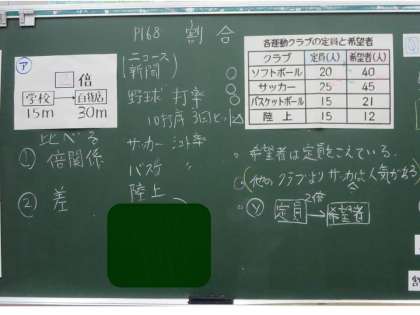 P168 割合
㋐
倍
学校 → 百貨店
15m 30m
比べる
① 倍関係
② 差
ニュース
新聞
野球 打率
10打席 3回ヒット
サッカー シュート率
バスケ 〃
陸上
各運動クラブの定員と希望者
クラブ 定員(人) 希望者(人)
ソフトボール 20 40
サッカー 25 45
バスケットボール 15 21
陸上 15 12
希望者は定員をこえている。
他のクラブよりサッカーは人気がある
2倍
定員 → 希望者